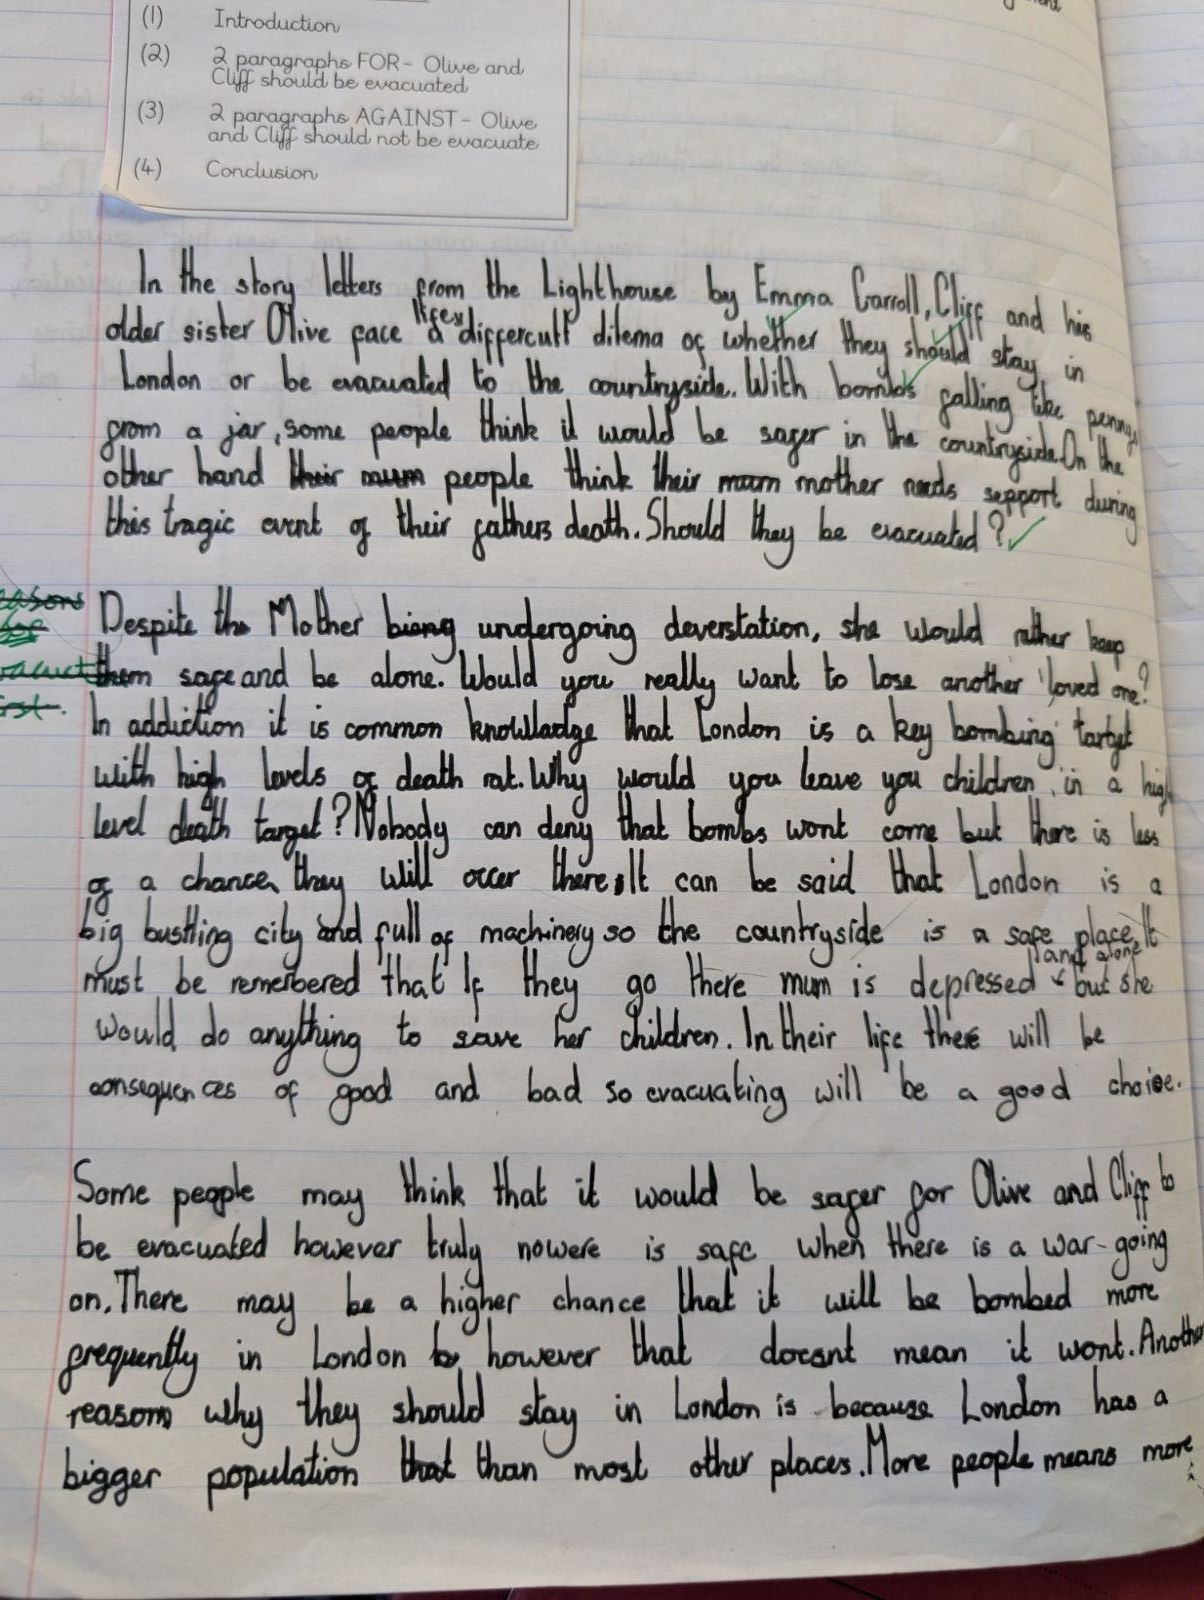 (1) Introduction
(2) 2 paragraphs FOR- Olive and
Cliff should be evacuated
(3) 2 paragraphs AGAINST- Olive
and Cliff should not be evacuate
(4) Conclusion
In the story letters from the Lighthouse by Emma Carroll, Cliff and his
older sister Olive face lifes differcult dilema of whether they should stay in
London or be evacuated to the countryside. With bombs falling like pennys
from a jar, some people think it would be safer in the countryside. On the
other hand their mum people think their mum mother needs support during
this tragic event of their fathers death. Should they be evacuated?
Despite the Mother biong undergoing deverstation, she would rather keep
them safe and be alone. Would you really want to lose another 'loved one?'
In addiction it is common knowlladge that London is a key bombing target
with high levels of death rat. Why would you leave you children in a high
level death target? Nobody can deny that bombs wont come but there is less
of a chance they will occer there. It can be said that London is a
big bustling city and full of machinery so the countryside is a safe place. It
must be remerbered that If they go there mum is depressed and alone but she
would do anything to save her children. In their life there will be
consequences of good and bad so evacuating will be a good choise.
Some people may think that it would be safer for Olive and Cliff to
be evacuated however truly nowere is safe when there is a war-going
on. There may be a higher chance that it will be bombed more
frequently in London however that doesnt mean it wont. Another
reason why they should stay in London is because London has a
bigger population that than most other places. More people means more